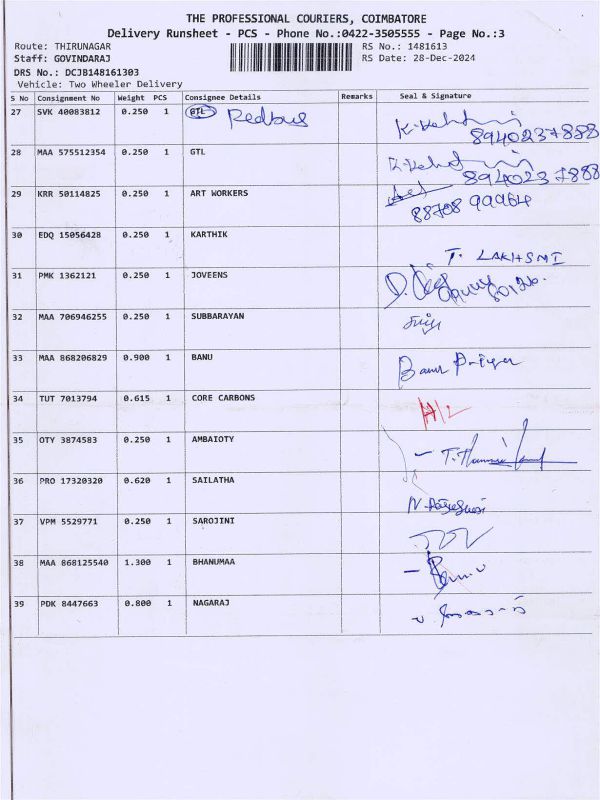 THE PROFESSIONAL COURIERS, COIMBATORE
Delivery Runsheet - PCS - Phone No.:0422-3505555 - Page No.:3
Route: THIRUNAGAR RS No.: 1481613
Staff: GOVINDARAJ RS Date: 28-Dec-2024
DRS No.: DCJB148161303
Vehicle: Two Wheeler Delivery
S No Consignment No Weight PCS Consignee Details Remarks Seal & Signature
27 SVK 40083812 0.250 1 GTL Redbus
8940237888
28 MAA 575512354 0.250 1 GTL
8940237888
29 KRR 50114825 0.250 1 ART WORKERS
88708 99964
30 EDQ 15056428 0.250 1 KARTHIK T. LAKHSMI
31 PMK 1362121 0.250 1 JOVEENS
32 MAA 706946255 0.250 1 SUBBARAYAN
33 MAA 868206829 0.900 1 BANU Banu Priya
34 TUT 7013794 0.615 1 CORE CARBONS
35 OTY 3874583 0.250 1 AMBAIOTY
36 PRO 17320320 0.620 1 SAILATHA
37 VPM 5529771 0.250 1 SAROJINI
38 MAA 868125540 1.300 1 BHANUMAA
39 PDK 8447663 0.800 1 NAGARAJ